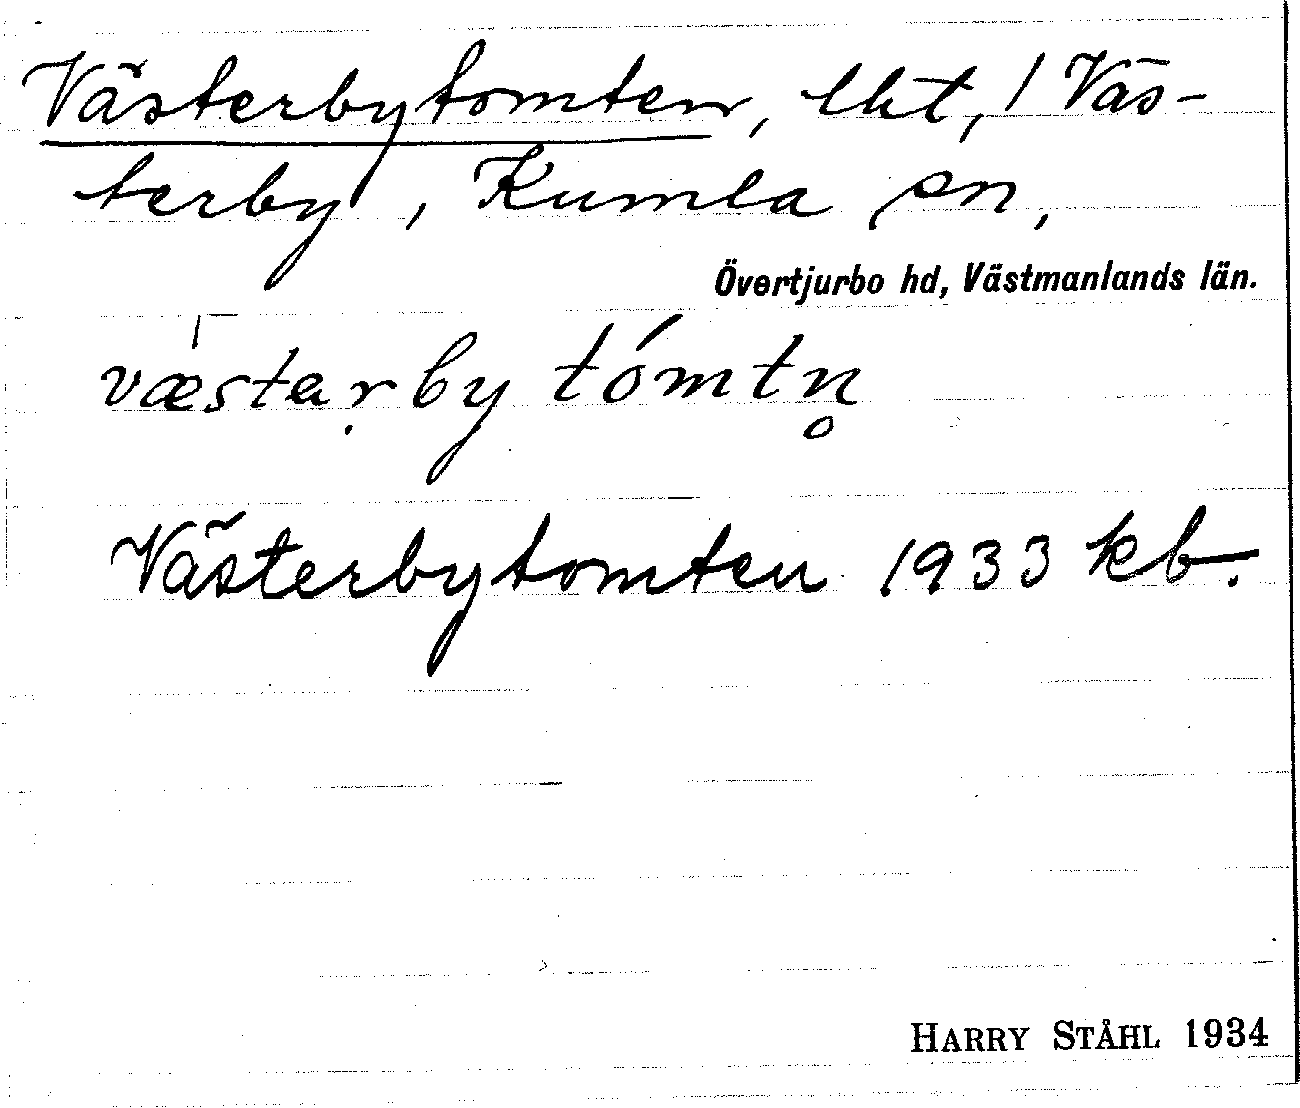 Västerbytomten, lht, / Väs-
terby, Kumla sn,
Övertjurbo hd, Västmanlands län.
væ̍stəṛby tómtn̥
Västerbytomten 1933 kb.
HARRY STÅHL 1934